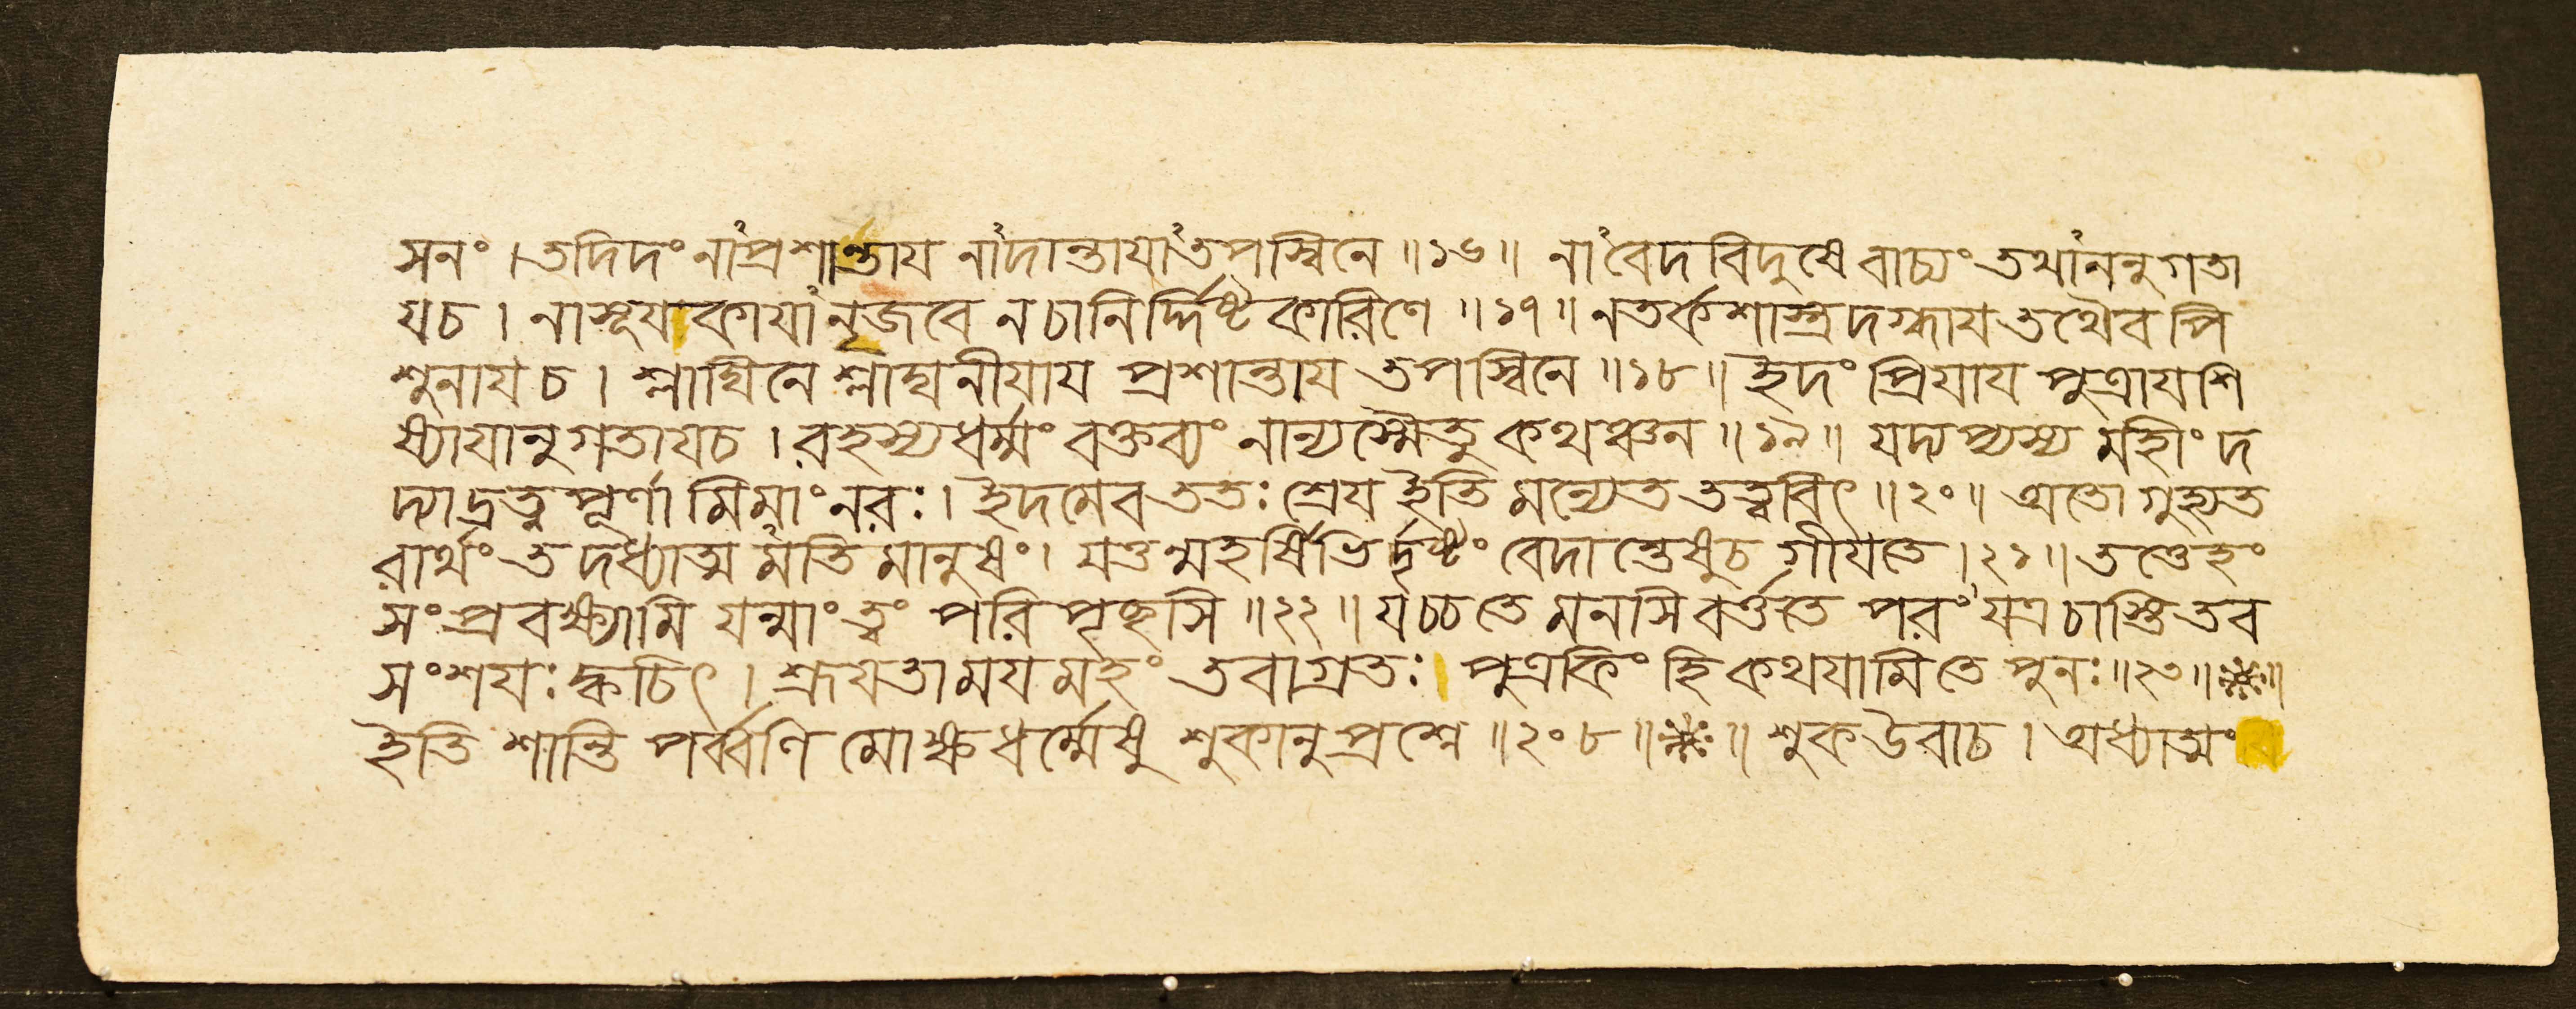 সনং । তদিদং নাঁপ্রশান্তায নাঁদান্তাযাঁতপস্বিনে ॥১৬॥ নাঁবেদবিদুষে বাচ্যং তথাঁননুগতা
যচ । নাসূযাকাযাঁনৃজবে নচানির্দ্দিষ্টকারিণে ॥১৭॥ নতর্কশাস্ত্রদগ্ধায তথৈব পি
শুনায চ । শ্লাঘিনে শ্লাঘনীযায প্রশান্তায তপস্বিনে ॥১৮॥ ইদং প্রিযায পুত্রায শি
ষ্যাযানুগতাযচ । রহস্যধর্ম্মং বক্তব্যং নান্যস্মৈতু কথঞ্চন ॥১৯॥ যদ্যপ্যস্য মহীং দ
দ্যাদ্রত্নপূর্ণামিমাংনরঃ । ইদমেব ততঃ শ্রেয ইতি মন্যেত তত্ত্ববিৎ ॥২০॥ অতো গুহ্যত
রার্থং তদধ্যাত্মমতিমানুষং । যত্তন্মহর্ষিভির্দৃষ্টং বেদান্তেষুচ গীযতে ।২১॥ তত্তেহং
সংপ্রবক্ষ্যামি যন্মাংত্বং পরিপৃচ্ছসি ॥২২॥ যচ্চ তে মনসি বর্ত্ততে পরং যত্রচাস্তি তব
সংশযঃ ক্বচিৎ । শ্রূযতামযমহং তবাগ্রতঃ । পুত্রকিং হি কথযামিতে পুনঃ ॥২৩॥※॥
ইতি শান্তিপর্ব্বণি মোক্ষধর্ম্মেষু শুকানুপ্রশ্নে ॥২০৮॥※॥ শুকউবাচ । অধ্যাত্মং